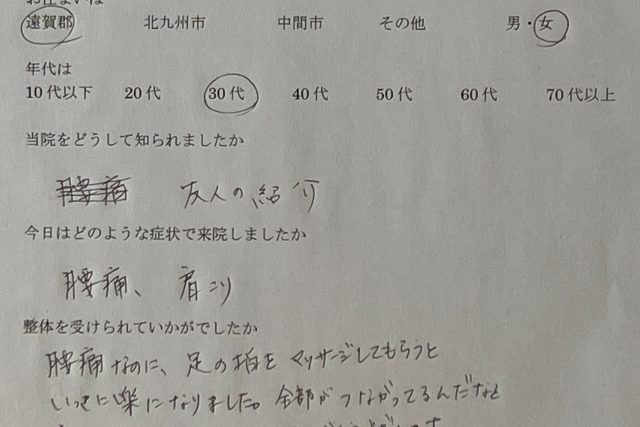 お住まいは
遠賀郡 北九州市 中間市 その他 男・女
年代は
10代以下 20代 30代 40代 50代 60代 70代以上
当院をどうして知られましたか
腰痛 友人の紹介
今日はどのような症状で来院しましたか
腰痛、肩こり
整体を受けられていかがでしたか
腰痛なのに、足の指をマッサージしてもらうと
いっきに楽になりました。全部がつながってるんだなと